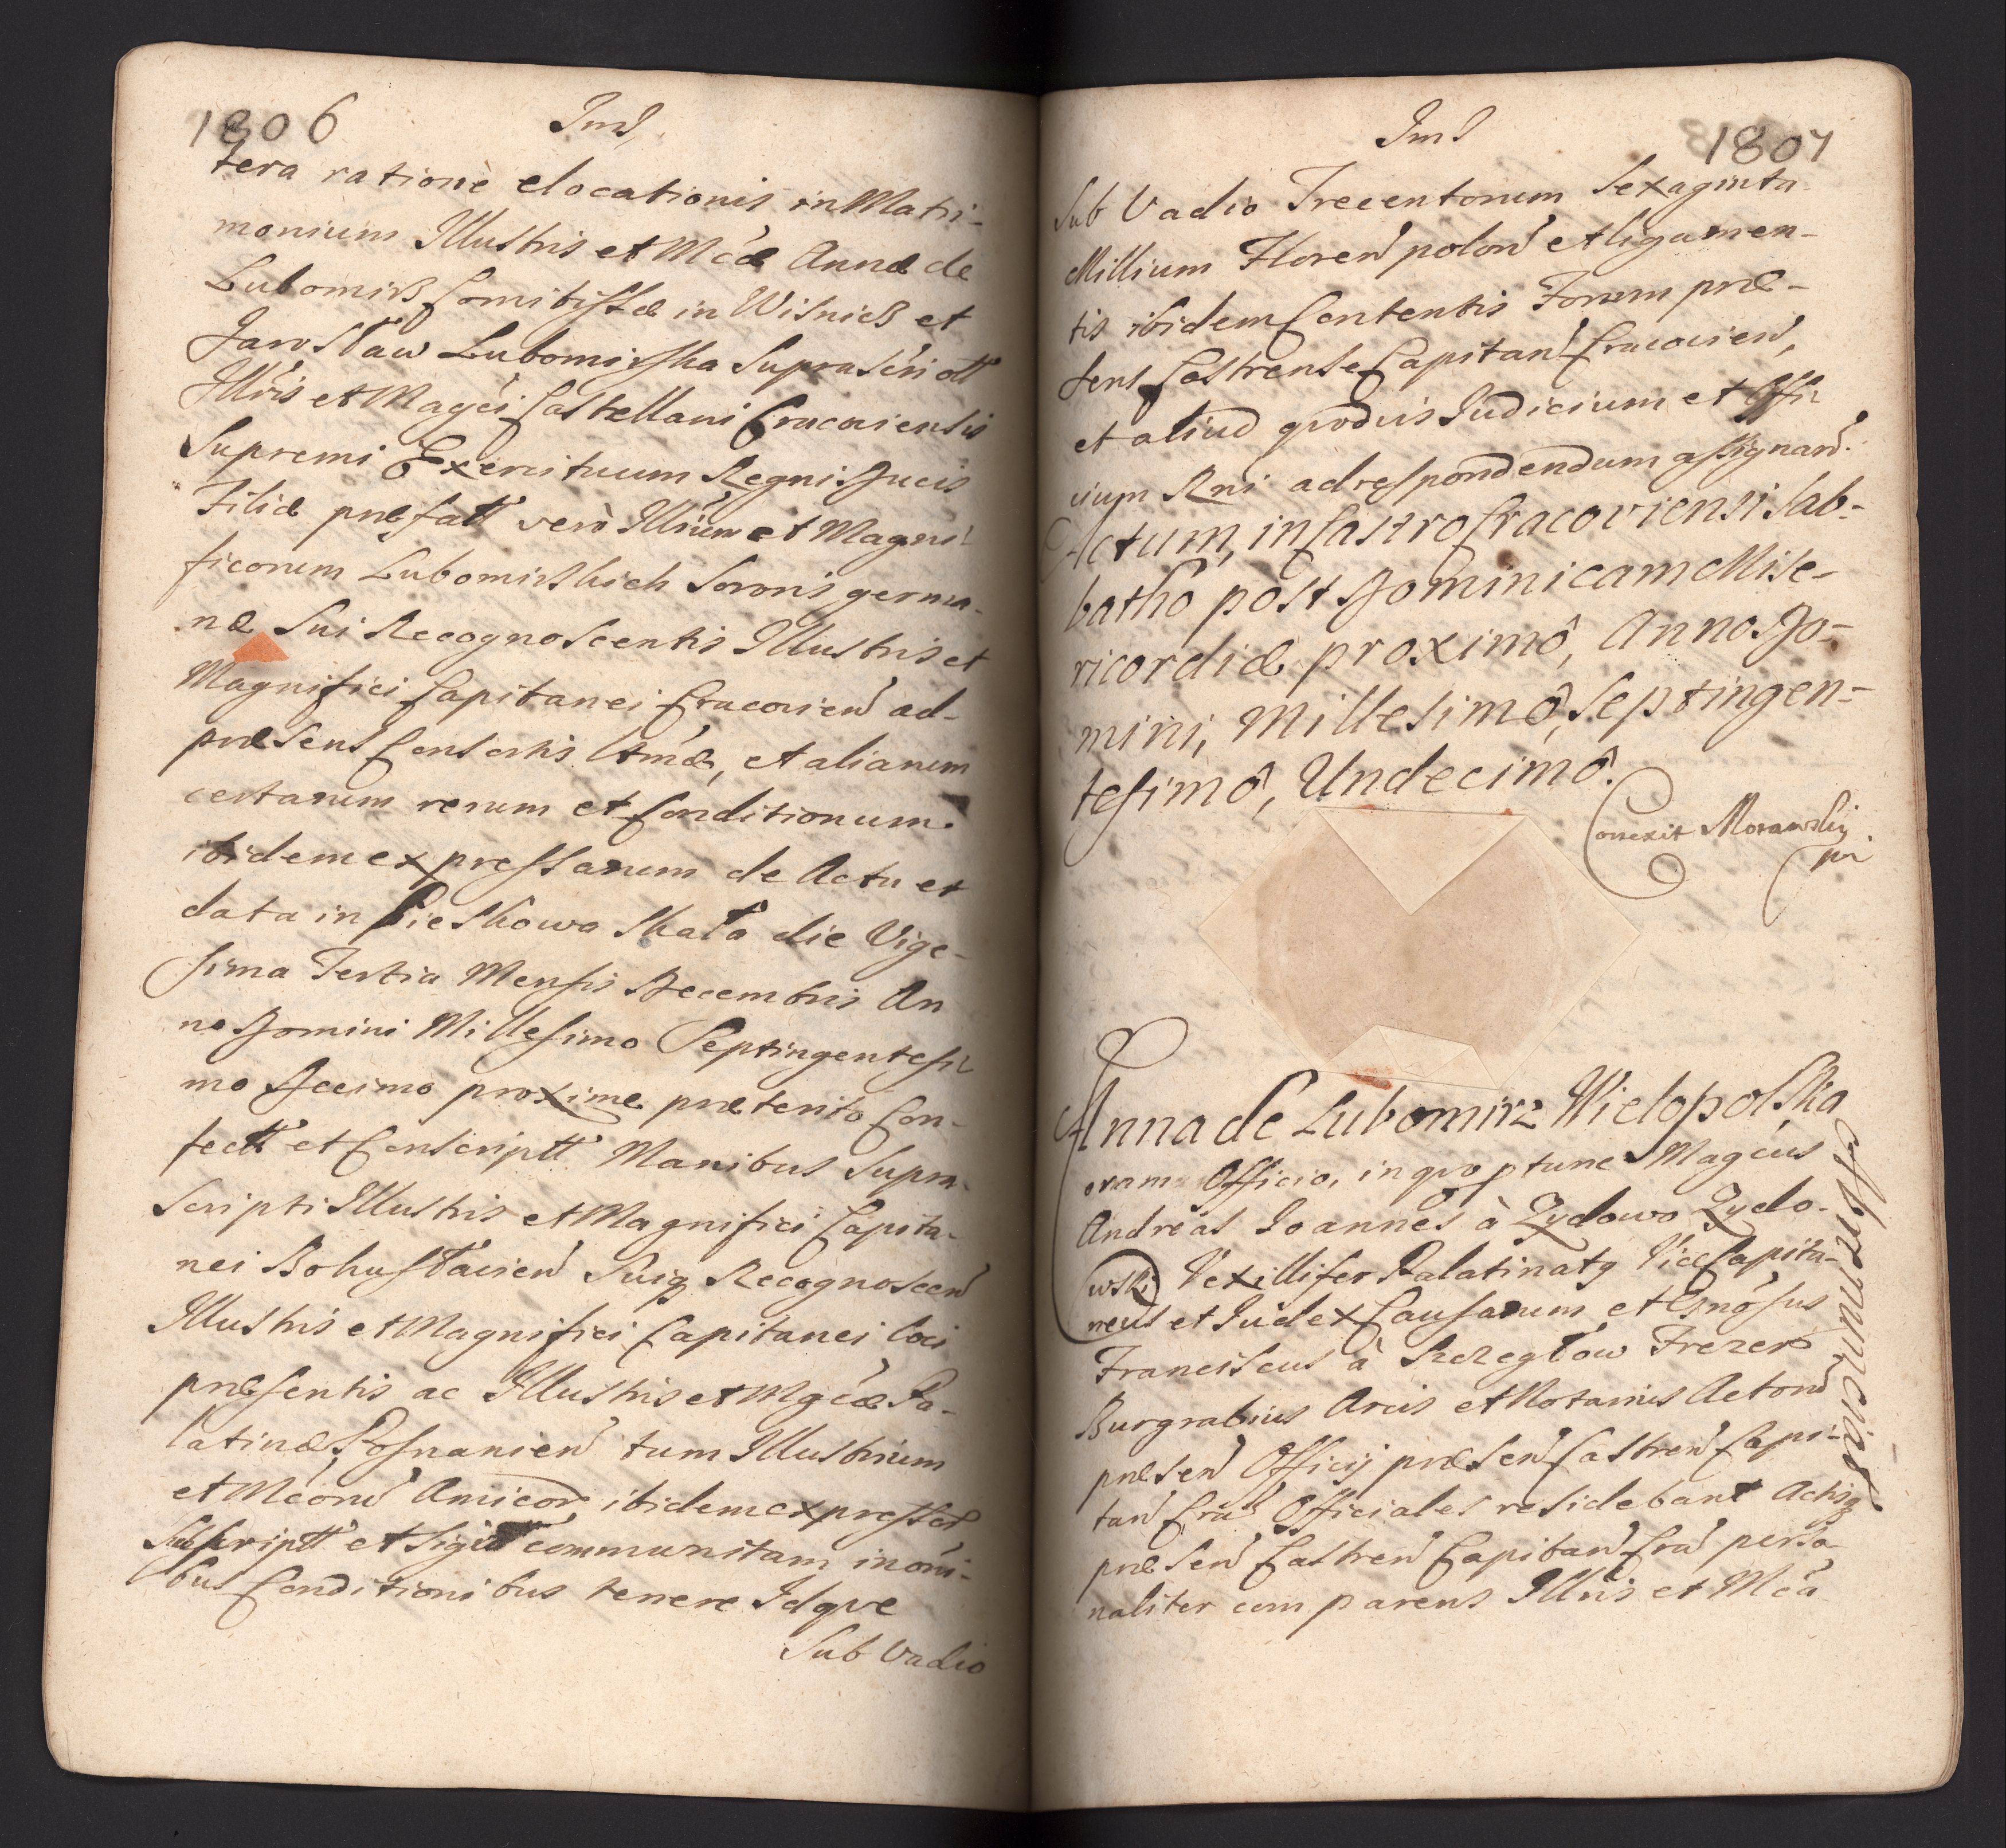 1806
Ind
tera ratione elocationis in Matri-
monium Illustris et Mcæ Annæ de
Lubomirz Comitissæ in Wisnicz et
Jarosław Lubomirska Suprascri ott
Illris et Magci Castellani Cracoviensis
Supremi Exercituum Regni Ducis
Filiæ præfatt verò Illrium et Magni-
ficorum Lubomirskich Sororis germa-
næ Sui Recognoscentis Illustris et
Magnifici Capitanei Cracovien ad-
præsens Consortis Ctmæ, et aliarum
certarum rerum et Conditionum
ibidem expressarum de Actu et
data in Pieskowa Skała die Vige-
sima Tertia Mensis Decembris An
no Domini Millesimo Septingentesi-
mo Decimo proxime præterito Con-
fectt et Conscriptt Manibus Supra-
scripti Illustris et Magnifici Capita-
nei Bohuslavien Suiq Recognoscen
Illustris et Magnifici Capitanei loci
præsentis ac Illustris et Mgcæ Pa-
latinæ Posnanien tum Illustrium
et Mcorum Amicor ibidem expressor
Subscriptt et Sigill communitam in omi-
bus Conditionibus tenere Idqve
Sub Vadio
Ind
1807
Sub Vadio Trecentorum Sexaginta
Millium Floren polon et ligamen-
tis ibidem Contentis Forum præ-
sens Castrense Capitan Cracovien,
et aliud qvodvis Judicium et Offi-
cium Rni ad respondendum assignan.
Actum, in Castro Cracoviensi Sab-
batho post Dominicam Mise-
ricordiæ proximô, Anno Do-
mini, Millesimô, Septingen-
tesimô, Undecimô.
Correxit Morawskij
pr
Anna de Lubomirz Wielopolska
oram Officio, in qvo ptunc Magcus
Andreas Joannes à Zydowo Zydo-
wski Vexillifer Palatinatq ViceCapita-
neus et Judex Causarum et Gnosus
Franciscus à Frezer
Burgrabius Arcis et Notarius Actorum
præsen Officij præsen Castren Capi-
tan Crac Officiales residebant Actisq
præsen Castren Capitan Cra perso-
naliter comparens Illris et Mca